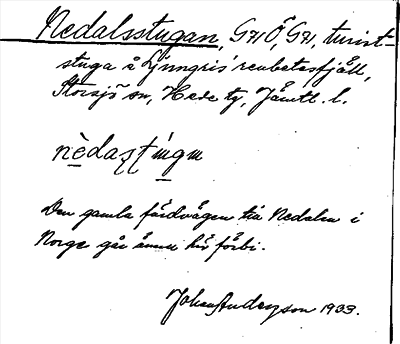 Nedalsstugan, GV Ö, GV, turist-
stuga å Ljungris' renbetesfjäll,
Storsjö sn, Hede tg, Jämtl. l.
Den gamla färdvägen till Nedalen i
Norge går ännu här förbi.
Johan Anderson 1933.